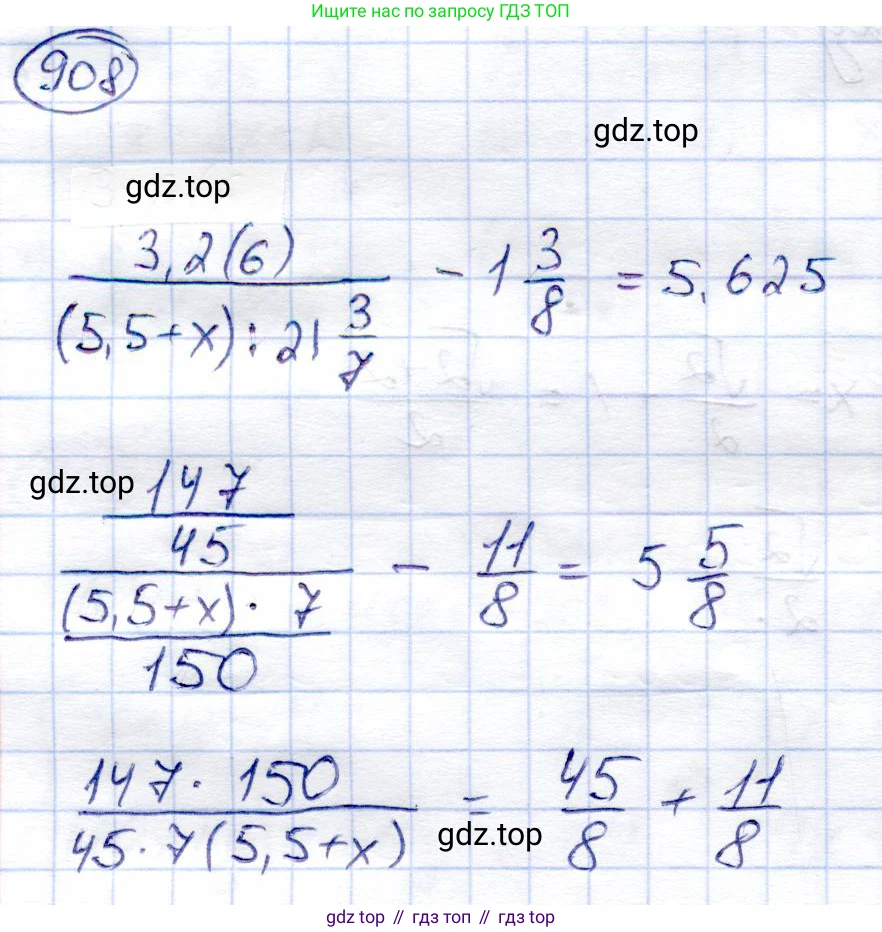 Ищите нас по запросу ГДЗ ТОП
908
gdz.top
gdz.top
3,2(6) / ((5,5+x) : 21 3/7) - 1 3/8 = 5.625
gdz.top
(147/45) / ((5,5+x) · 7 / 150) - 11/8 = 5 5/8
(147 · 150) / (45 · 7(5,5+x)) = 45/8 + 11/8
gdz.top
gdz top // гдз топ // gdz top